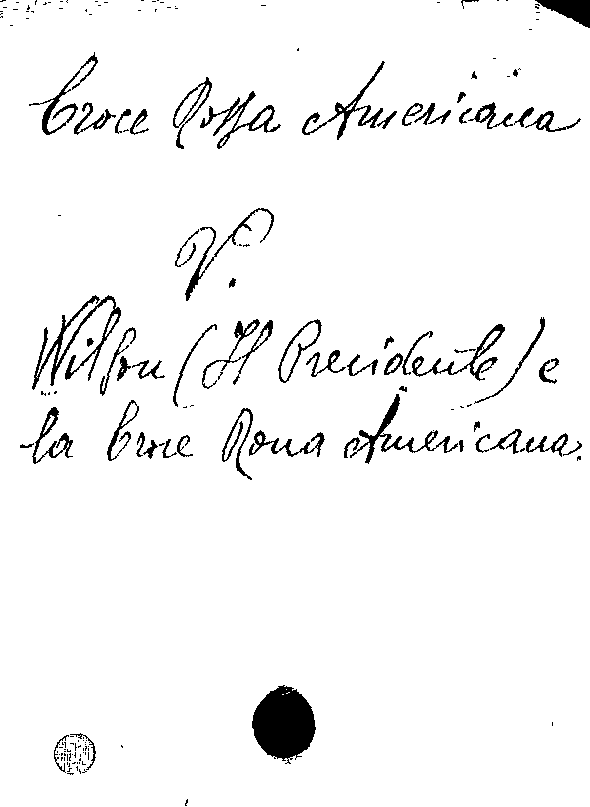 Croce Rossa Americana
V.
Wilson (Il Presidente) e
la Croce Rossa Americana.